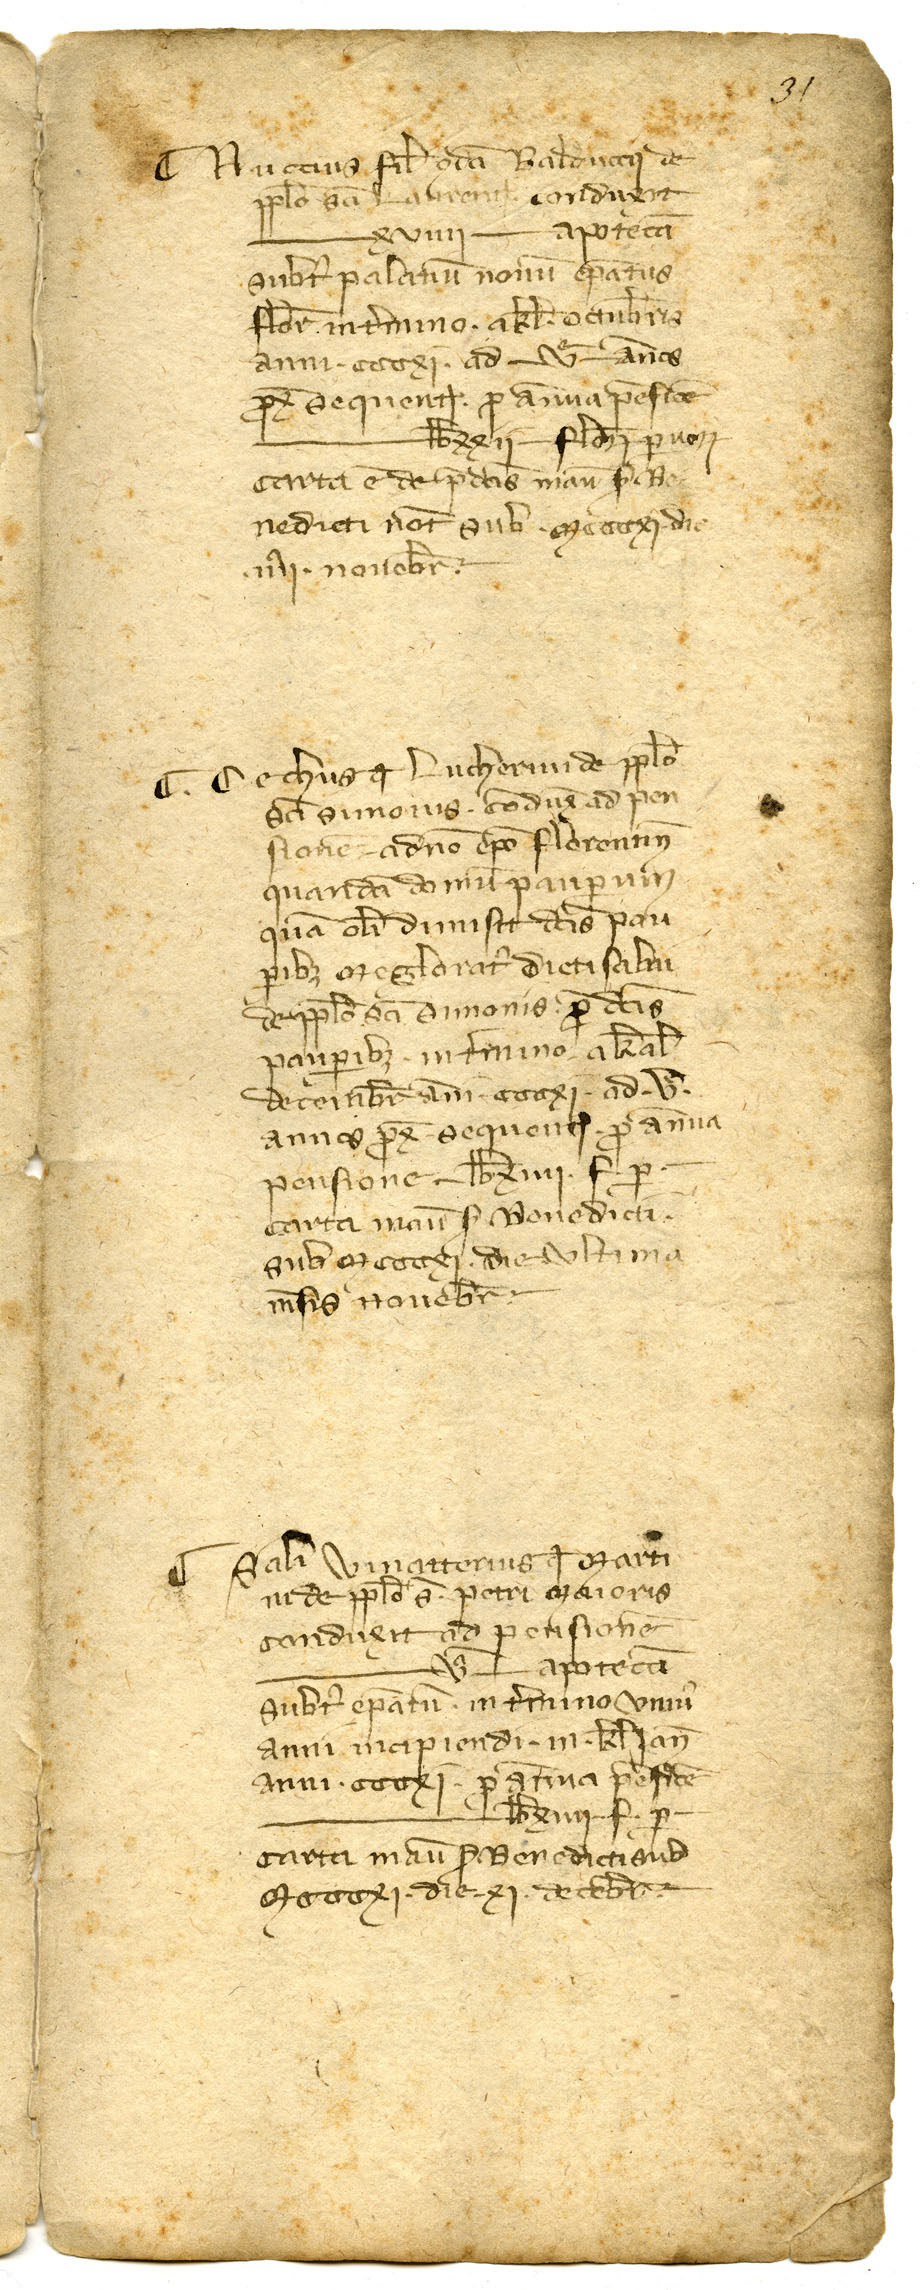 31
Nuccius fil qda Balduccij de
pplo sci Laurentij. conduxit
xviiii apotecā
subtꝰ palatiū nouū epatus
flor. in tᵉmino. a kl. octubris
anni. cccxi. ad v annos
prox sequentes. pro annua pensiōe
lb xxii florenorum paruorum
carta ē de pdcis manu ẜ Be
nedicti not sub. Mcccxi. die
iiii. nouēbr.
Cechus q Lucherini de pplo
Sci Simonis. conduxit ad pen
sionē a dno epo florentino
quandā domū pauperum
quā oli dimisit dcis pau
peribꝫ Megloratꝰ dieti salui
de pplo sci Simonis pro dcis
pauperibꝫ. in tᵉmino a kal
decembr ani. cccxi. ad. v.
annos prox sequentes. pro annua
pensione. lb xiiii. f. p.
carta manu ẜ Benedicti.
sub Mcccxi. die vltima
mēsis nouēbr
Salui vinatterius q Marti
ni de pplo s. petri maioris
conduxit ad pensionē
v apotecā
subtꝰ epatū. in tᵉmino vniꝰ
anni incipiendi. in. kl Ian
anni. cccxi. pro annua pensiōe
lb xiiii. f. p.
carta manu ẜ Benedicti sub
Mcccxi. die. xi. decēbr.